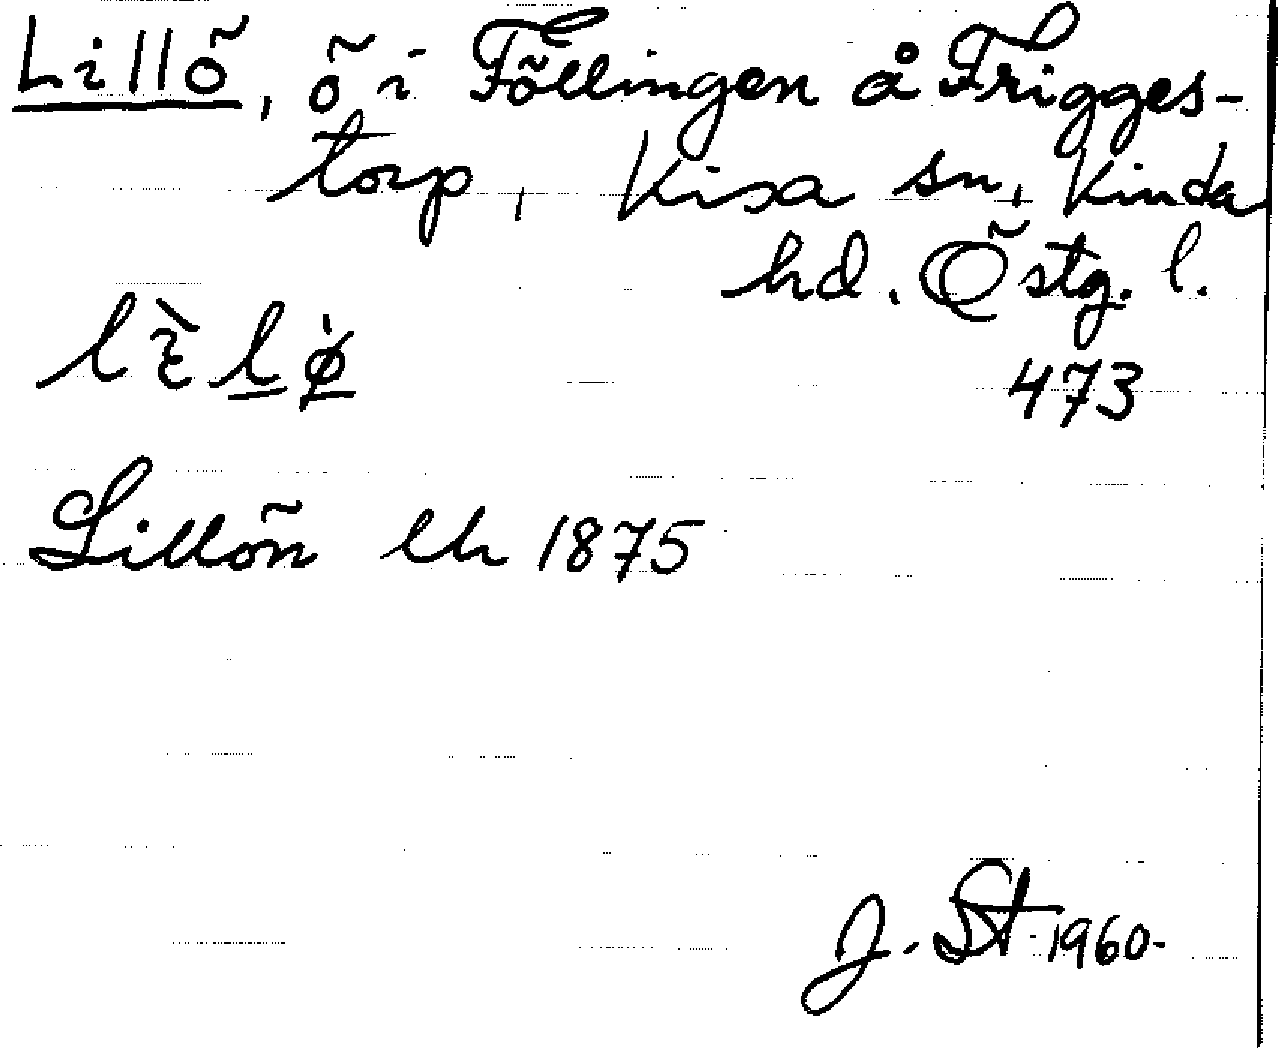 Lillö, ö i Föllingen å Frigges-
torp, Kisa sn, Kinda
hd. Östg. l.
473
Lillön lh 1875
J. St 1960